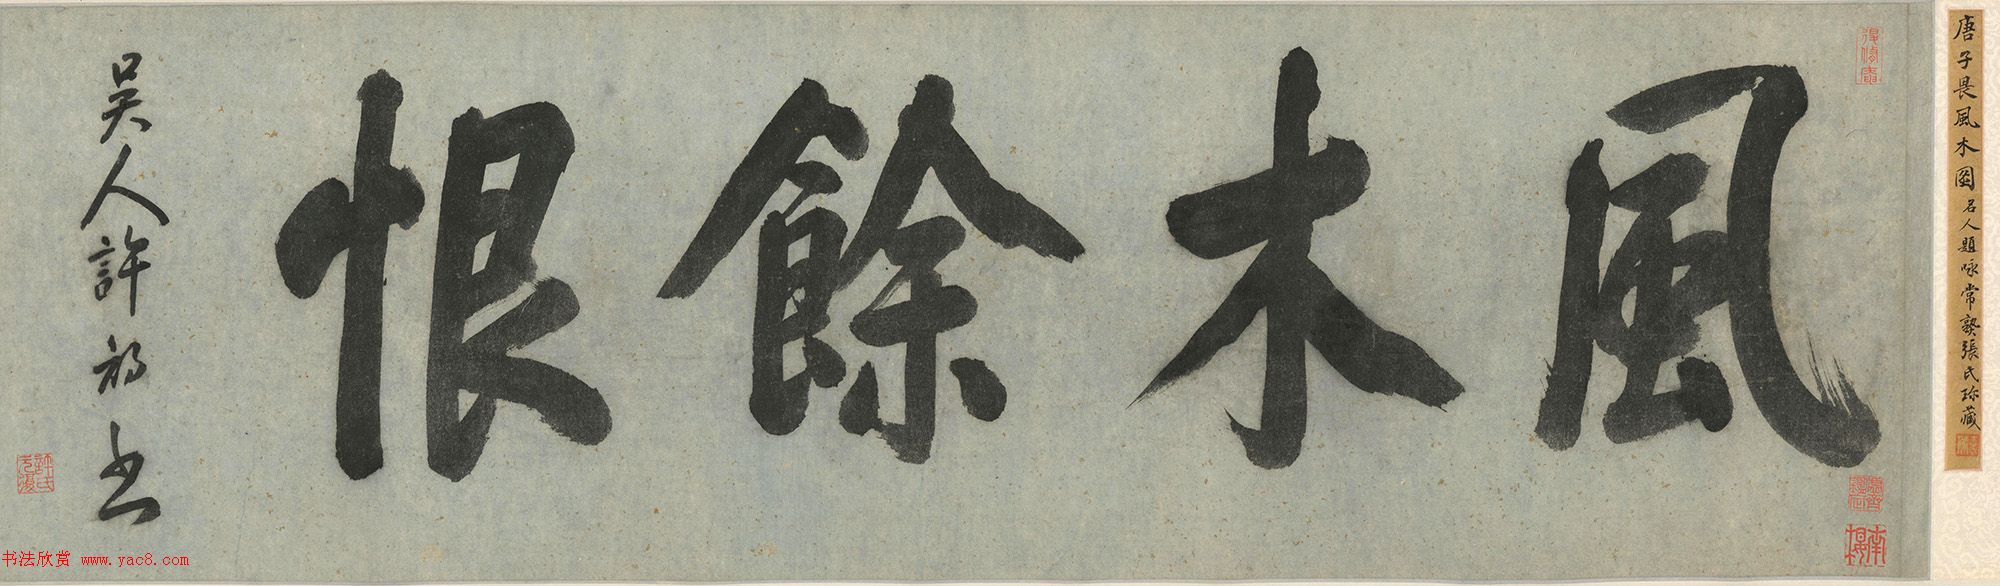 唐子畏風木圖 名人題咏 常熟張氏珍藏
風木餘恨
吳人許初書
許氏元復
书法欣赏 www.yac8.com